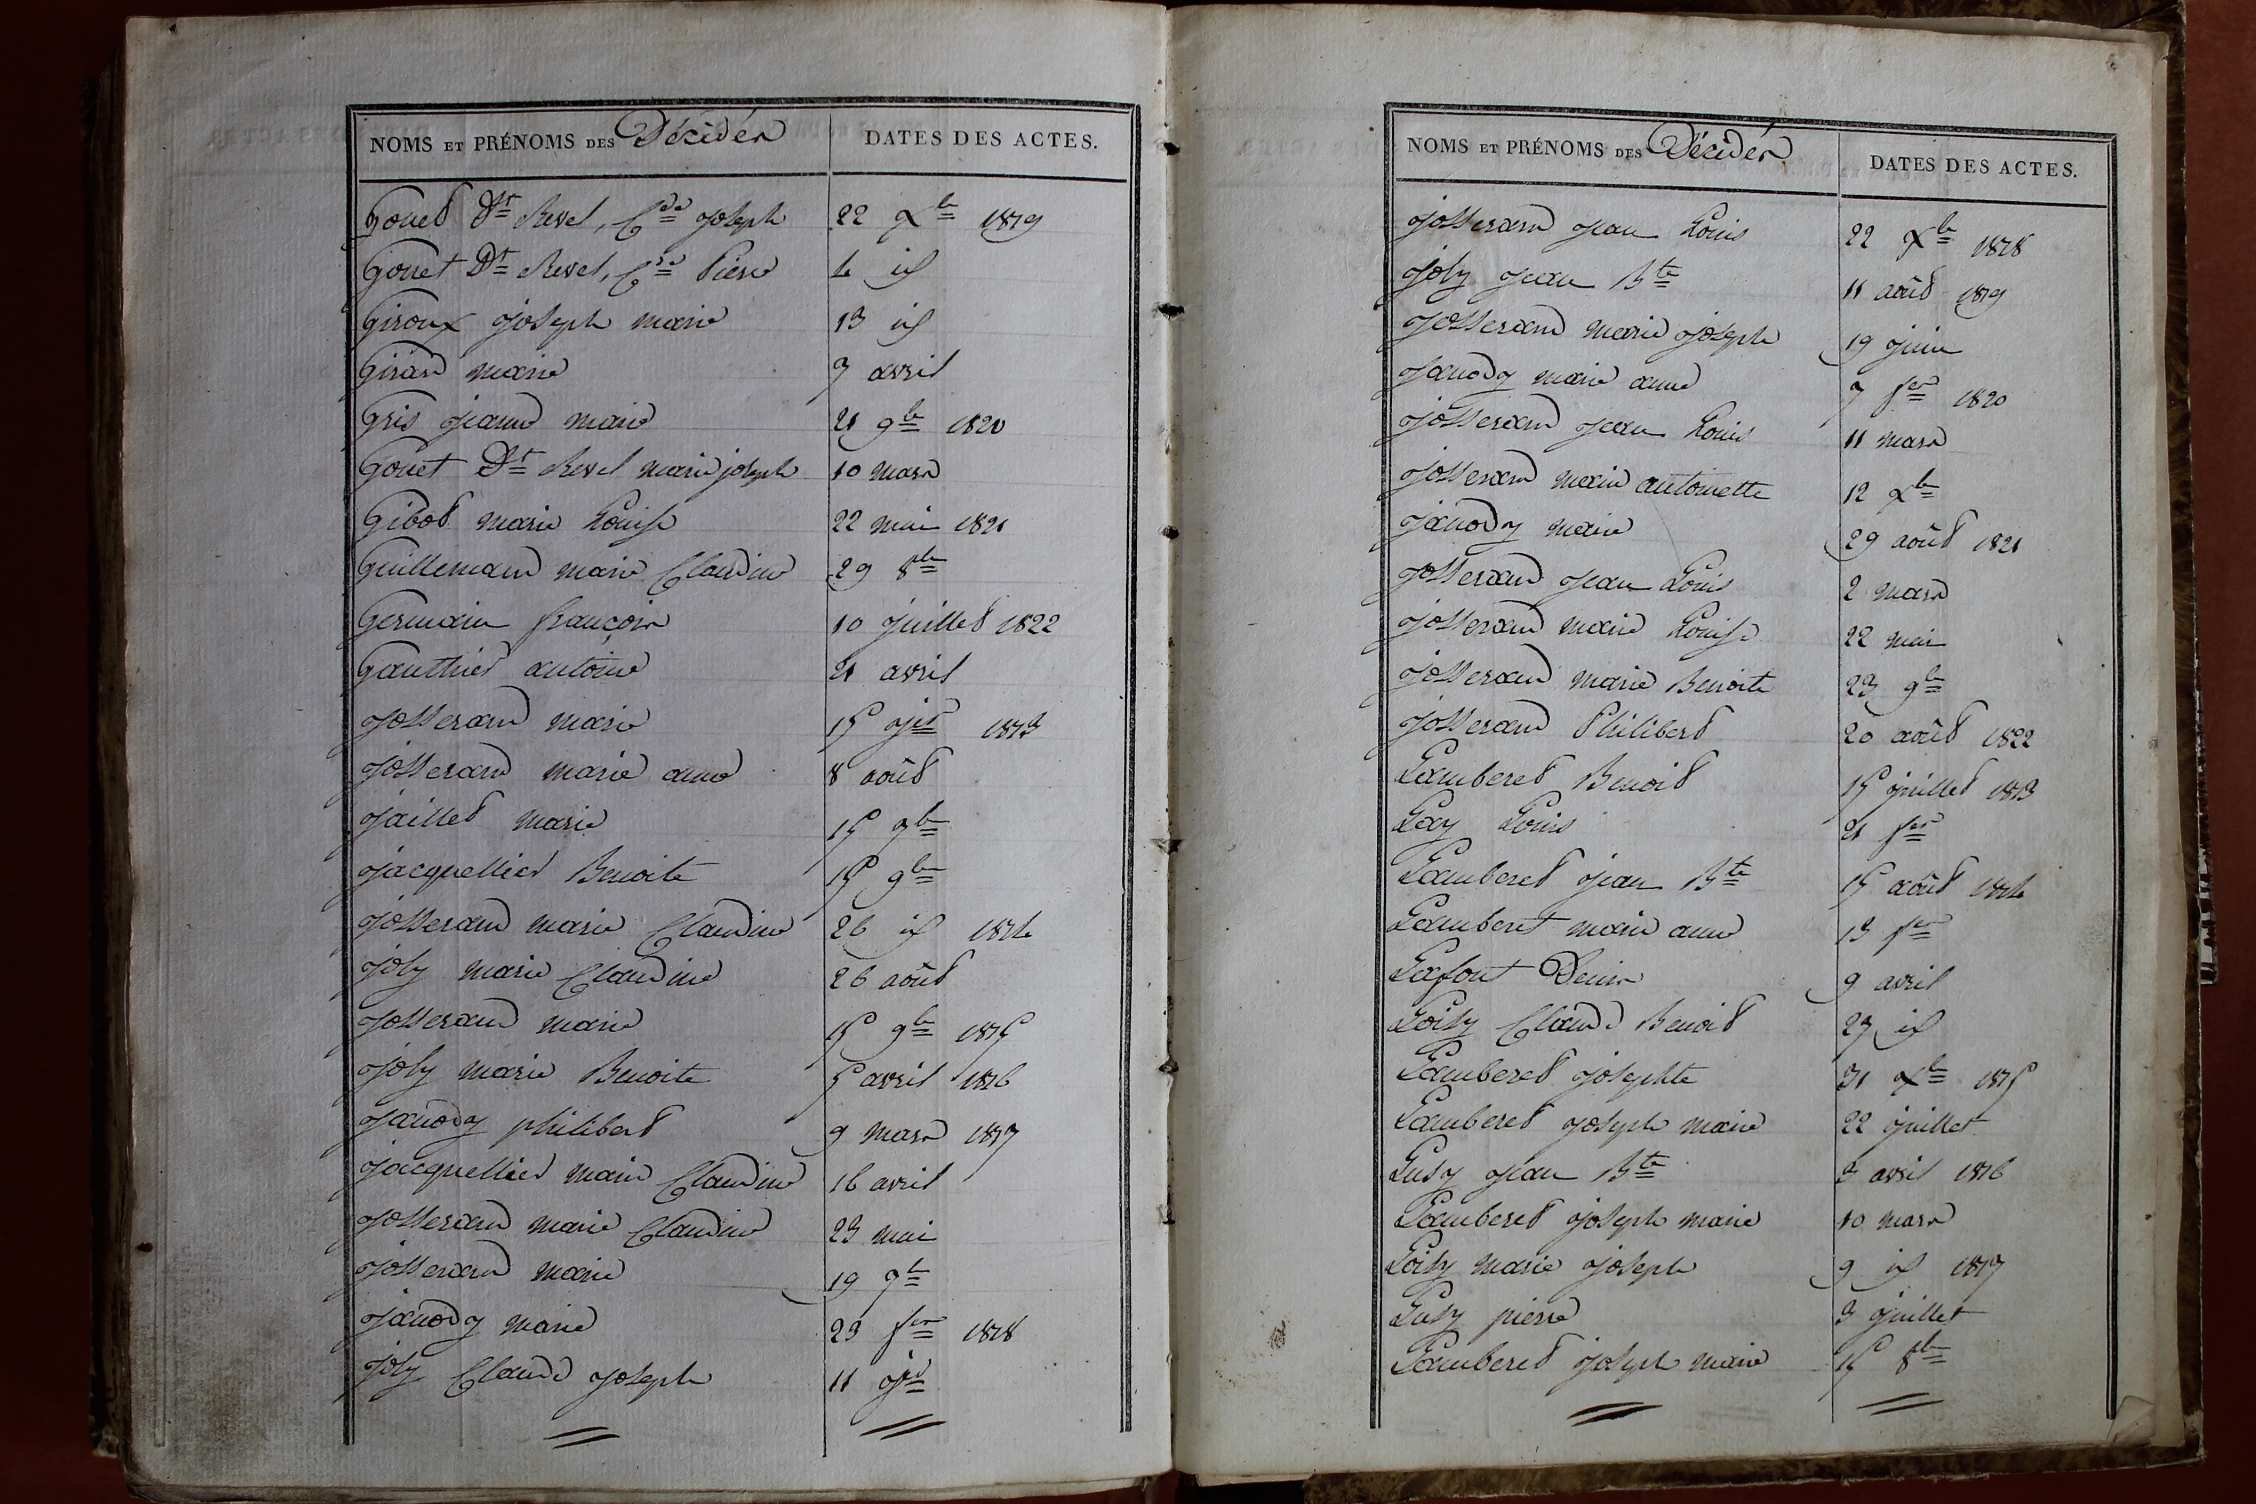 NOMS ET PRÉNOMS DES Décédés DATES DES ACTES.
Gouet Dt Revel, Cde joseph 22 Xbre 1819
Gouet Dt Revel, Cde Pierre 4 id
Giroux joseph marie 13 id
Girard marie 7 avril
Gris jeanne marie 21 9bre 1820
Gouet Dt Revel marie joseph 10 mars
Gibot marie Louise 22 mai 1821
Guillemaud marie Claudine 29 8bre
Germain françois 10 juillet 1822
Gauthier antoine 21 avril
josserand marie 15 jet 1813
josserand marie anne 8 août
jaillet marie 15 7bre
jacquellier Benoite 15 9bre
josserand marie Claudine 26 id 1814
joly marie Claudine 26 août
josserand marie 15 9bre 1815
joly marie Benoite 5 avril 1816
janody philibert 9 mars 1817
jacquellier marie Claudine 16 avril
josserand marie Claudine 23 mai
josserand marie 19 7bre
janody marie 23 fer 1818
joly Claude joseph 11 jet
NOMS ET PRÉNOMS DES Décédés DATES DES ACTES.
josserand jean Louis 22 Xbre 1818
joly jean Bte 11 août 1819
josserand marie joseph 19 juin
janody marie anne 7 fer 1820
josserand jean Louis 11 mars
josserand marie antoinette 12 Xbre
janody marie 29 août 1821
josserand jean Louis 2 mars
josserand marie Louise 22 mai
josserand marie Benoite 23 9bre
josserand Philibert 20 août 1822
Lamberet Benoit 15 juillet 1813
Lay Louis 21 fer
Lamberet jean Bte 15 août 1814
Lamberet marie anne 13 fer
Lafont Denis 9 avril
Loisy Claude Benoit 27 id
Lamberet josephte 31 Xbre 1815
Lamberet joseph marie 22 juillet
Lusy jean Bte 3 avril 1816
Lamberet joseph marie 10 mars
Loisy marie joseph 9 id 1817
Lusy pierre 3 juillet
Lamberet joseph marie 15 8bre